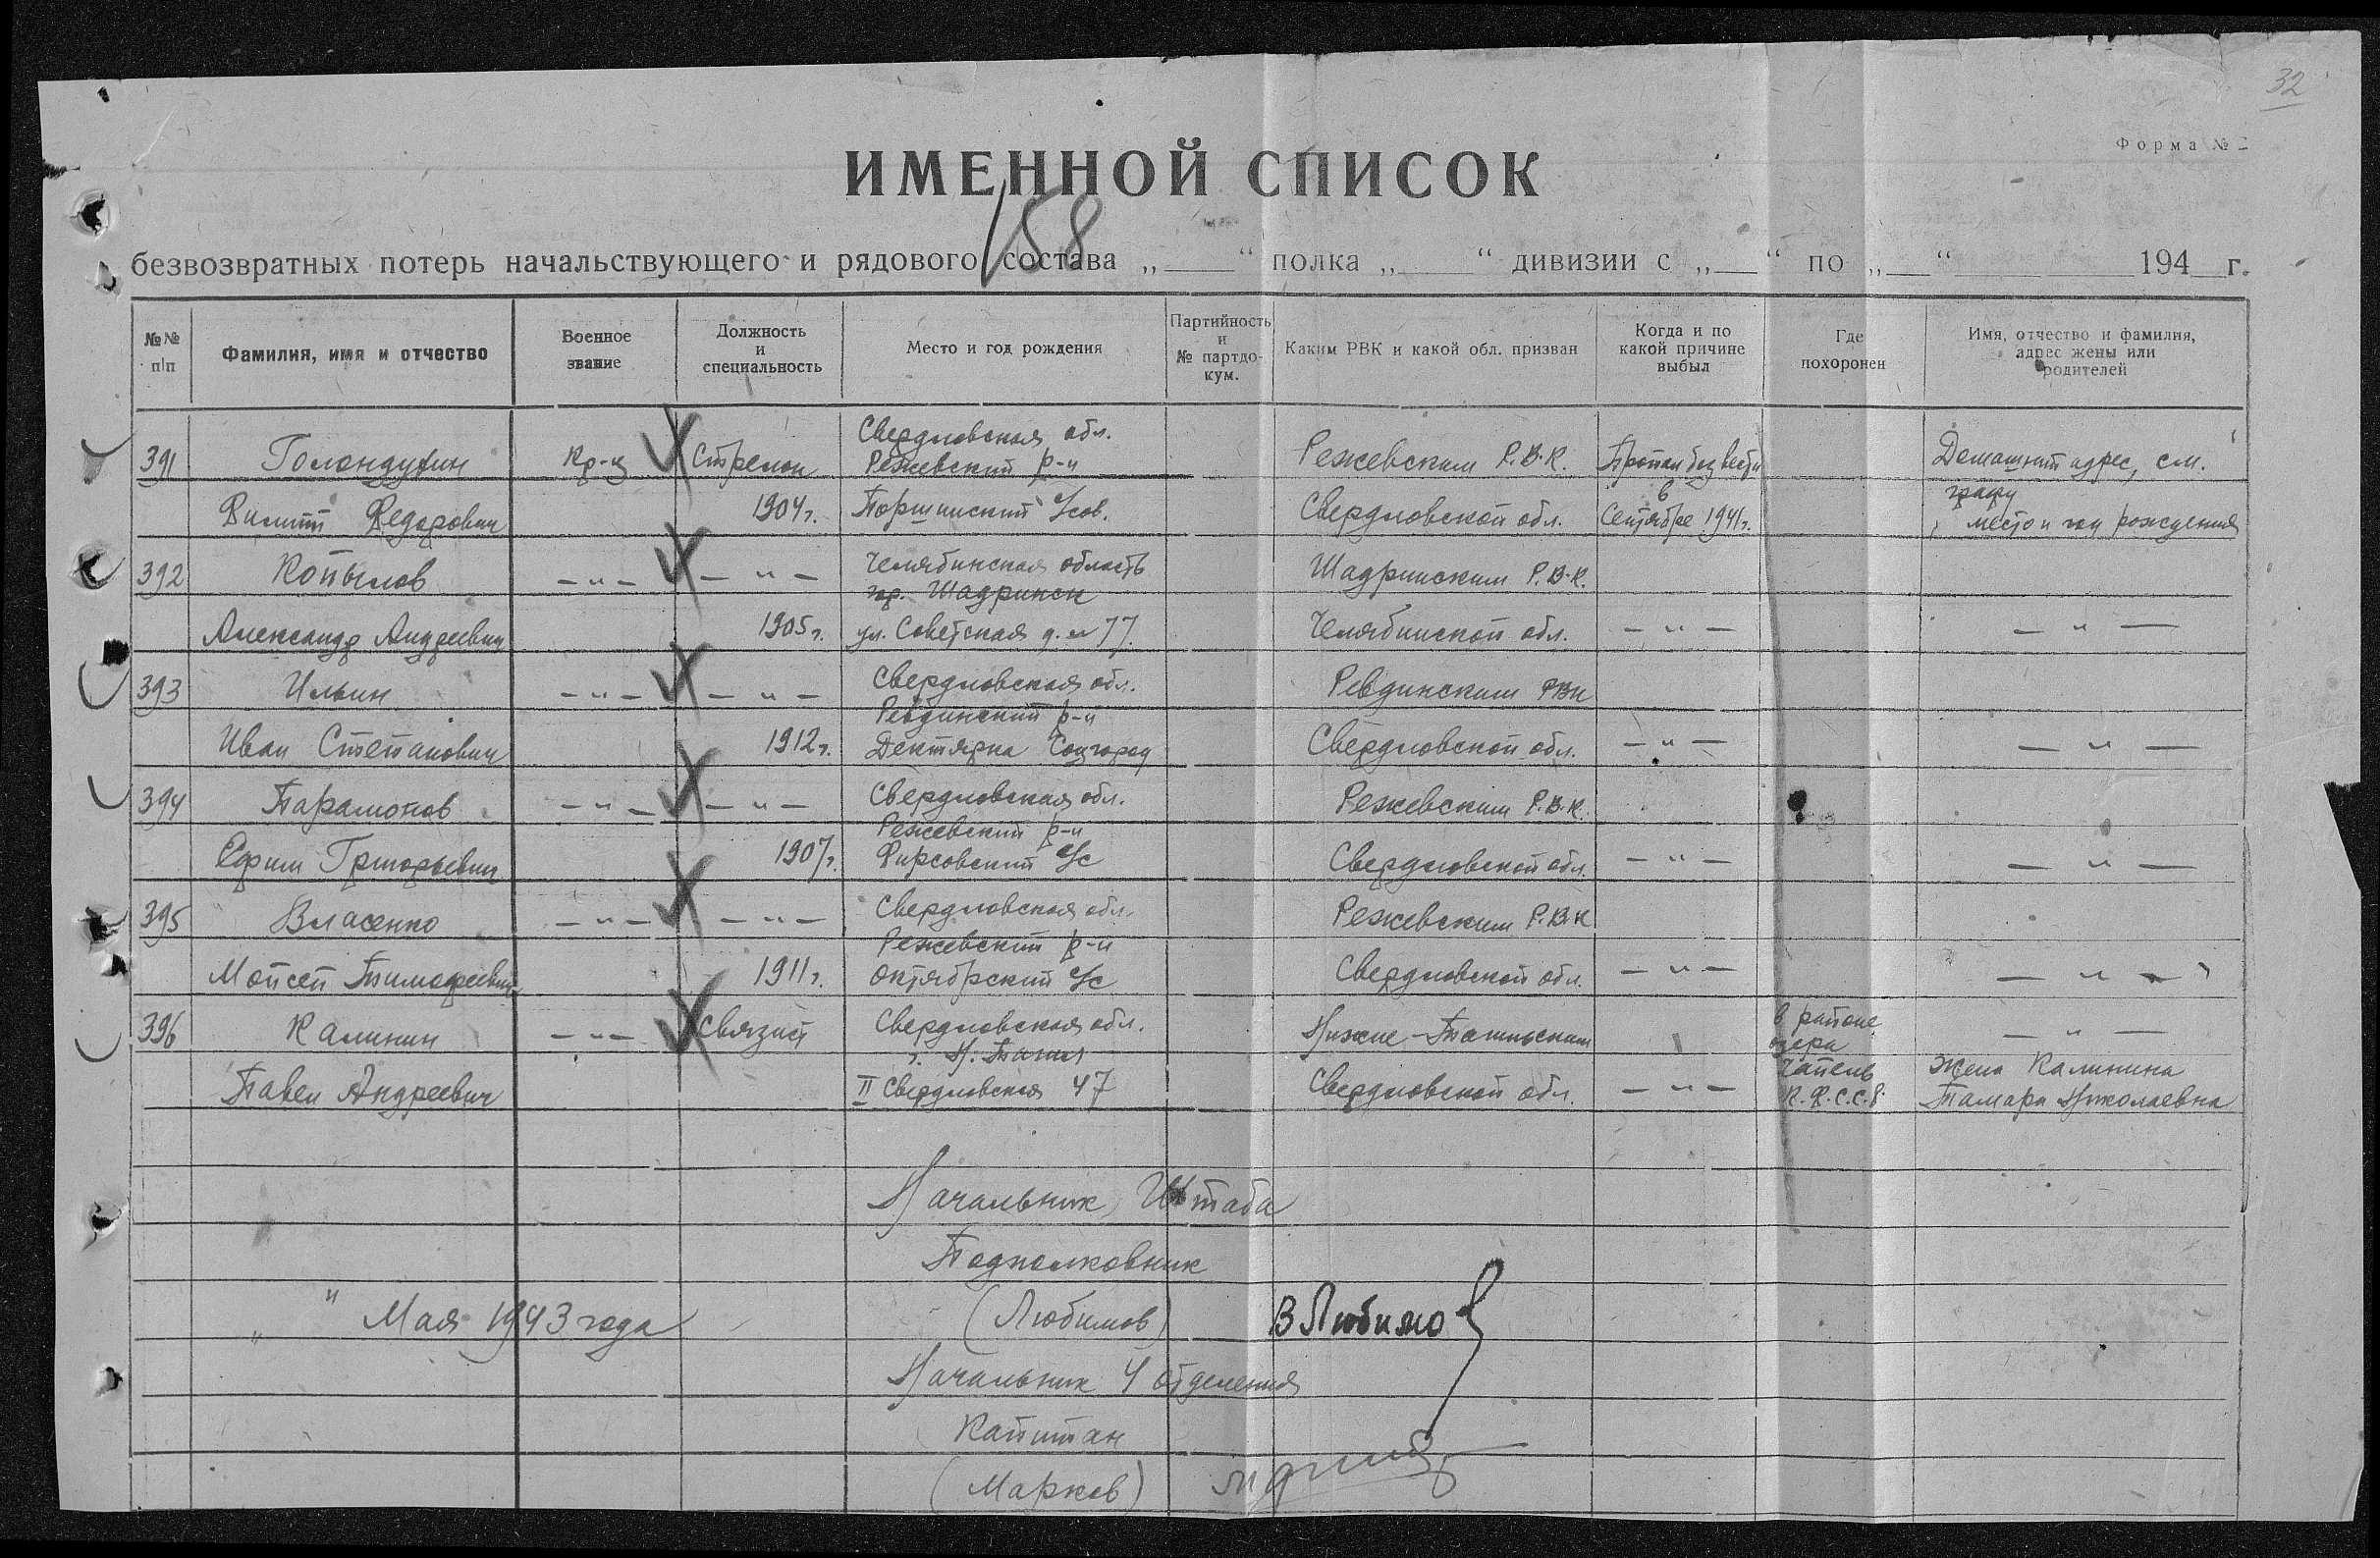 32
Форма №
ИМЕННОЙ СПИСОК
158
безвозвратных потерь начальствующего и рядового состава „ “ полка „ “ дивизии с „ “ по „ “ 194 г.
№№ п/п
Фамилия, имя и отчество
Военное звание
Должность и специальность
Место и год рождения
Партийность и № партдокум.
Каким РВК и какой обл. призван
Когда и по какой причине выбыл
Где похоронен
Имя, отчество и фамилия, адрес жены или родителей
391 Голендухин Кр-ц Стрелок Свердловская обл. Режевский р-н Режевским Р.В.К. Пропал без вести Домашний адрес, см.
Филипп Федорович 1904г. Поршинский с/сов. Свердловской обл. в Сентябре 1941г. графу место и год рождения
392 Копылов —„— —„— Челябинская область гор. Шадринск Шадринским Р.В.К.
Александр Андреевич 1905г. ул. Советская д.№77. Челябинской обл. —„— —„—
393 Ильин —„— —„— Свердловская обл. Ревдинский р-н Ревдинским РВК
Иван Степанович 1912г. Дегтярка Соцгород Свердловской обл. —„— —„—
394 Парамонов —„— —„— Свердловская обл. Режевский р-н Режевским Р.В.К.
Ефим Григорьевич 1907г. Фирсовский с/с Свердловской обл. —„— —„—
395 Власенко —„— —„— Свердловская обл. Режевский р-н Режевским Р.В.К
Мойсей Тимофеевич 1911г. Октябрский с/с Свердловской обл. —„— —„—
396 Калинин —„— Связист Свердловская обл. г. Н. Тагил Нижне-Тагильским в районе озера —„—
Павел Андреевич II Свердловская 47 Свердловской обл. —„— К.Ф.С.С.Р. Жена Калинина Тамара Николаевна
Начальник Штаба
Подполковник
„ „ Мая 1943 года (Любимов) В Любимов
Начальник 4 отделения
Капитан
(Марков)